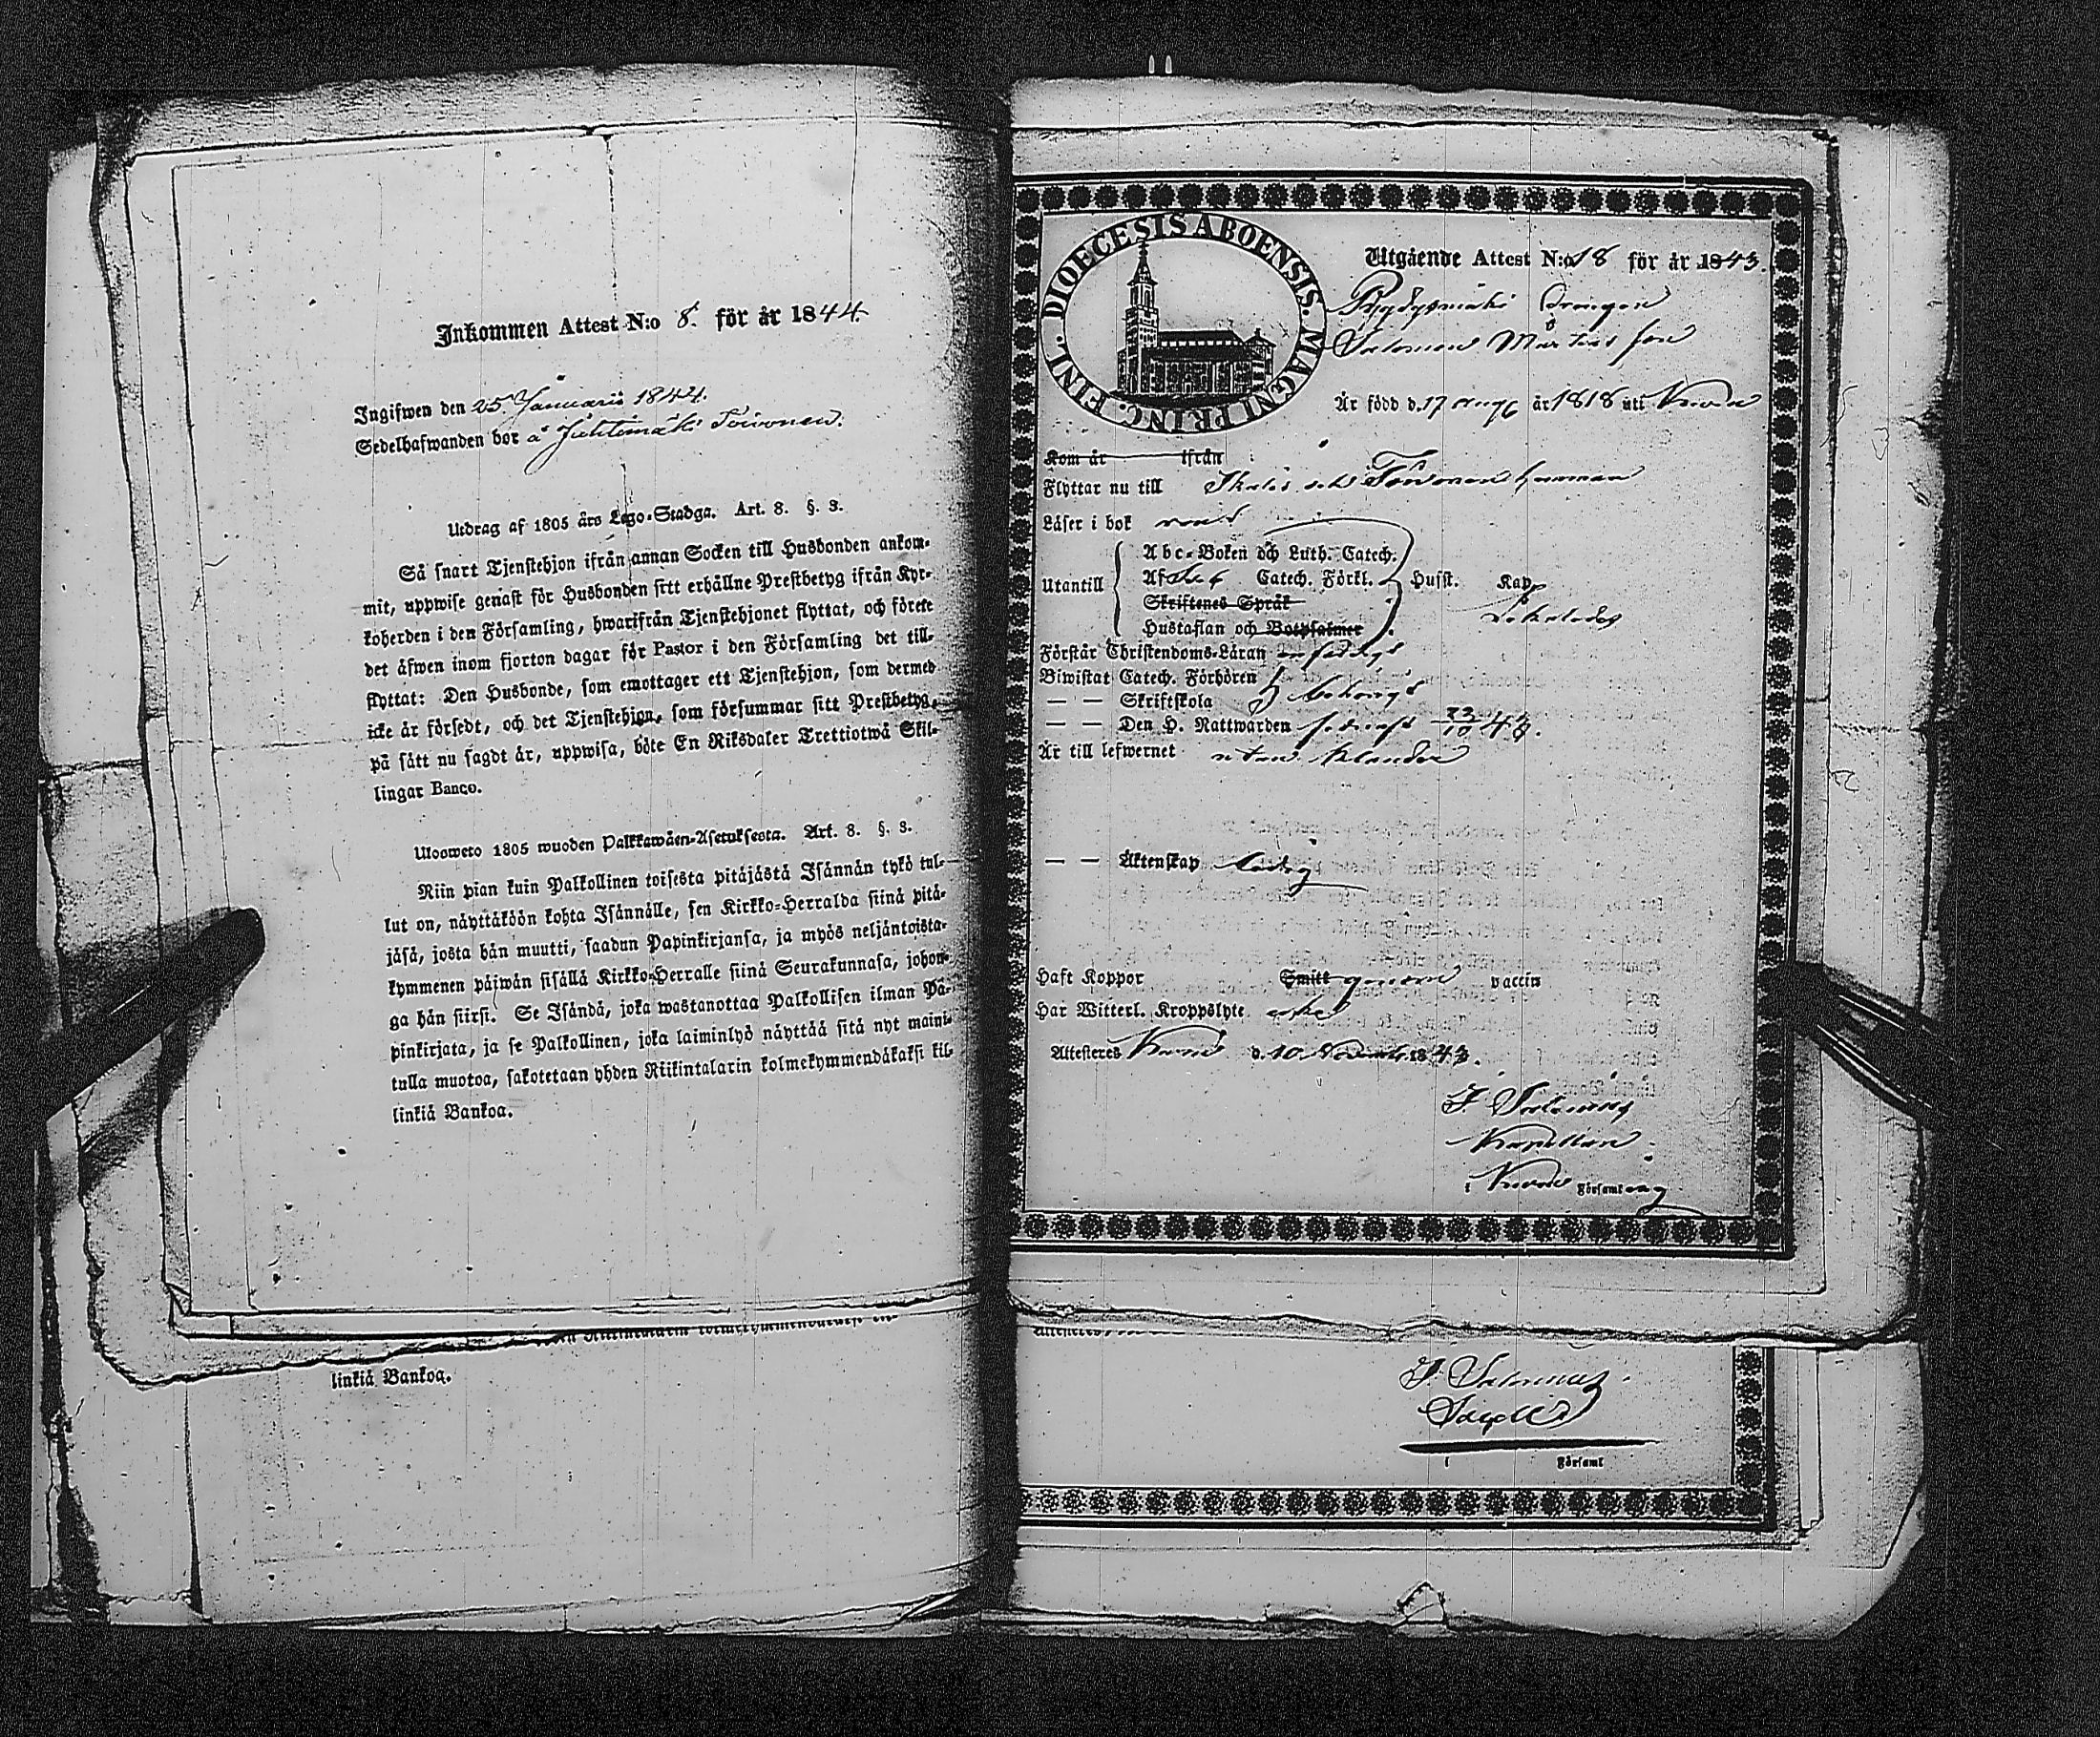 Inkommen Attest N:o 8. för år 1844.
Ingifwen den 25 Januarii 1844.
Sedelhafwanden bor å Juhtimäki Toivonen.
Utdrag af 1805 års Lego-Stadga. Art. 8. §. 3.
Så snart Tjenstehjon ifrån annan Socken till Husbonden ankom-
mit, uppwise genast för Husbonden sitt erhållne Prestbetyg ifrån Kyr-
koherden i den Församling, hwarifrån Tjenstehjonet flyttat, och förete
det äfwen inom fjorton dagar för Pastor i den Församling det till-
flyttat: Den Husbonde, som emottager ett Tjenstehjon, som dermed
icke är försedt, och det Tjenstehjon, som försummar sitt Prestbetyg,
på sätt nu sagdt är, uppwisa, böte En Riksdaler Trettiotwå Skil-
lingar Banco.
Uloswето 1805 wuoden Palkkawäen-Asetuksesta. Art. 8. §. 3.
Niin pian kuin Palkollinen toisesta pitäjästä Isännän tykö tul-
lut on, näyttäköön kohta Isännälle, sen Kirkko-Herralda siinä pitä-
jäsä, josta hän muutti, saadun Papinkirjansa, ja myös neljäntoista-
kymmenen päiwän sisällä Kirkko-Herralle siinä Seurakunnasa, johon-
ga hän siirsi. Se Isändä, joka wastanottaa Palkollisen ilman Pa-
pinkirjata, ja se Palkollinen, joka laiminlyö näyttää sitä nyt maini-
tulla muotoa, sakotetaan yhden Riikintalarin kolmekymmendäkaksi kil-
linkiä Bankoa.
linkiä Bankoa.
FINL. DIOECESIS ABOENSIS. MAGNI PRINC.
Utgående Attest N:o 18 för år 1843.
Drengen
Salomon Mårtens son
Är född d. 17 Aug år 1818 uti
Kom år ifrån
Flyttar nu till
Läser i bok
Utantill
Abc-Boken och Luth. Catech.
Af Catech. Förkl. Husst. Kap
Skriftenes Språk
Hustaflan och Botpsalmer
Förstår Christendoms-Läran
Biwistat Catech. Förhören
— — Skriftskola
— — Den H. Nattwarden 43.
Är till lefwernet utan klander
— — Äktenskap ledig
Haft Koppor Smitt genom vaccin
Har Witterl. Kroppslyte
Attesteras d. 10 Novemb. 1843.
Kapellan
i Församling
i Församl